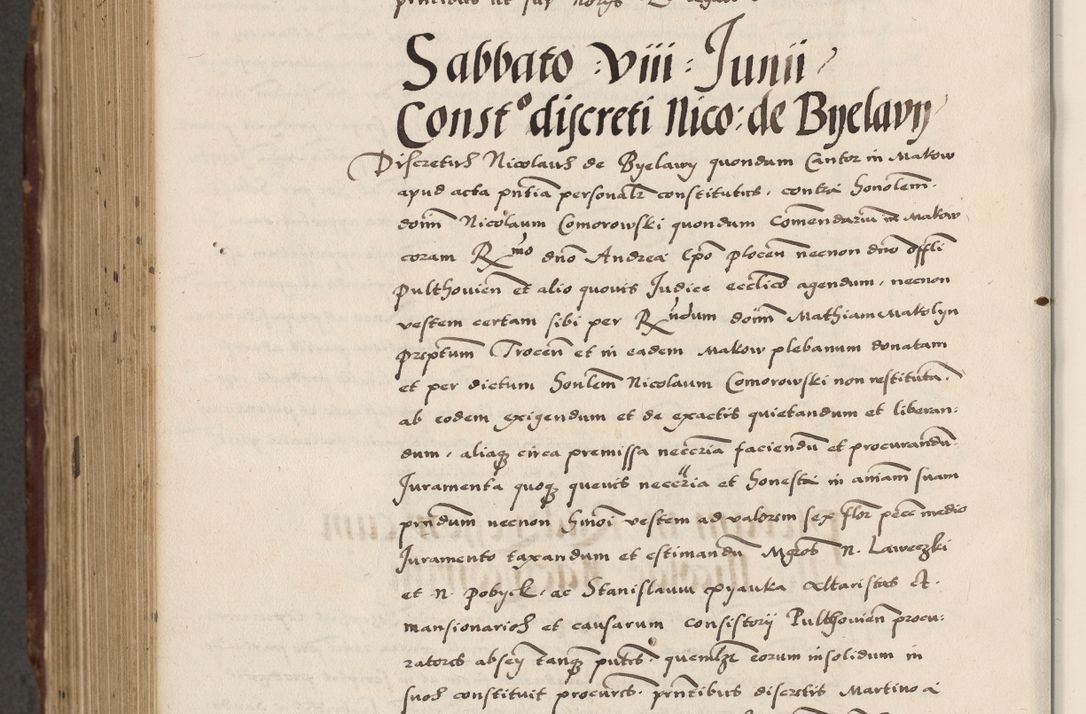 Sabbato : Viii : Junii
Const° discreti Nico: de Byelavy
Discretus Nicolaus de Byelavy quondam Cantor in Makow
apud acta pñtia personalr constitutus . contra honolem .
doñm Nicolaum Comorowski quondam Comendariũ in Makow
coram Rmo dno Andrea Epo plocen necnon dno offli
Pulthovien et alio quovis Judice ecclico agendum . necnon
vestem certam sibi per Rndum doñm Mathiam Makolyn
pręptum Trocen et in eadem Makow plebanum donatam
et per dictum honlem Nicolaum Comorowski non restitutã .
ab eodem exigendum et de exactis quietandum et liberan:
dum . aliaq circa premissa neccria faciendũ et procurandũ .
Juramenta quoq quevis neccria et honesta in aniam suam
prndum necnon hmoi vestem ad valorem sex flor medio
Juramento taxandum et estimandũ Mgros N. Laweczki
et N. Pobyek . ac Stanislaum pyavka altaristas et .
mansionarios et causarum consistorii Pulthovien procu:
ratores absen tanq pntes . quemlzt eorum insolidum in
suos constituit procures . prntibus discretis Martino a